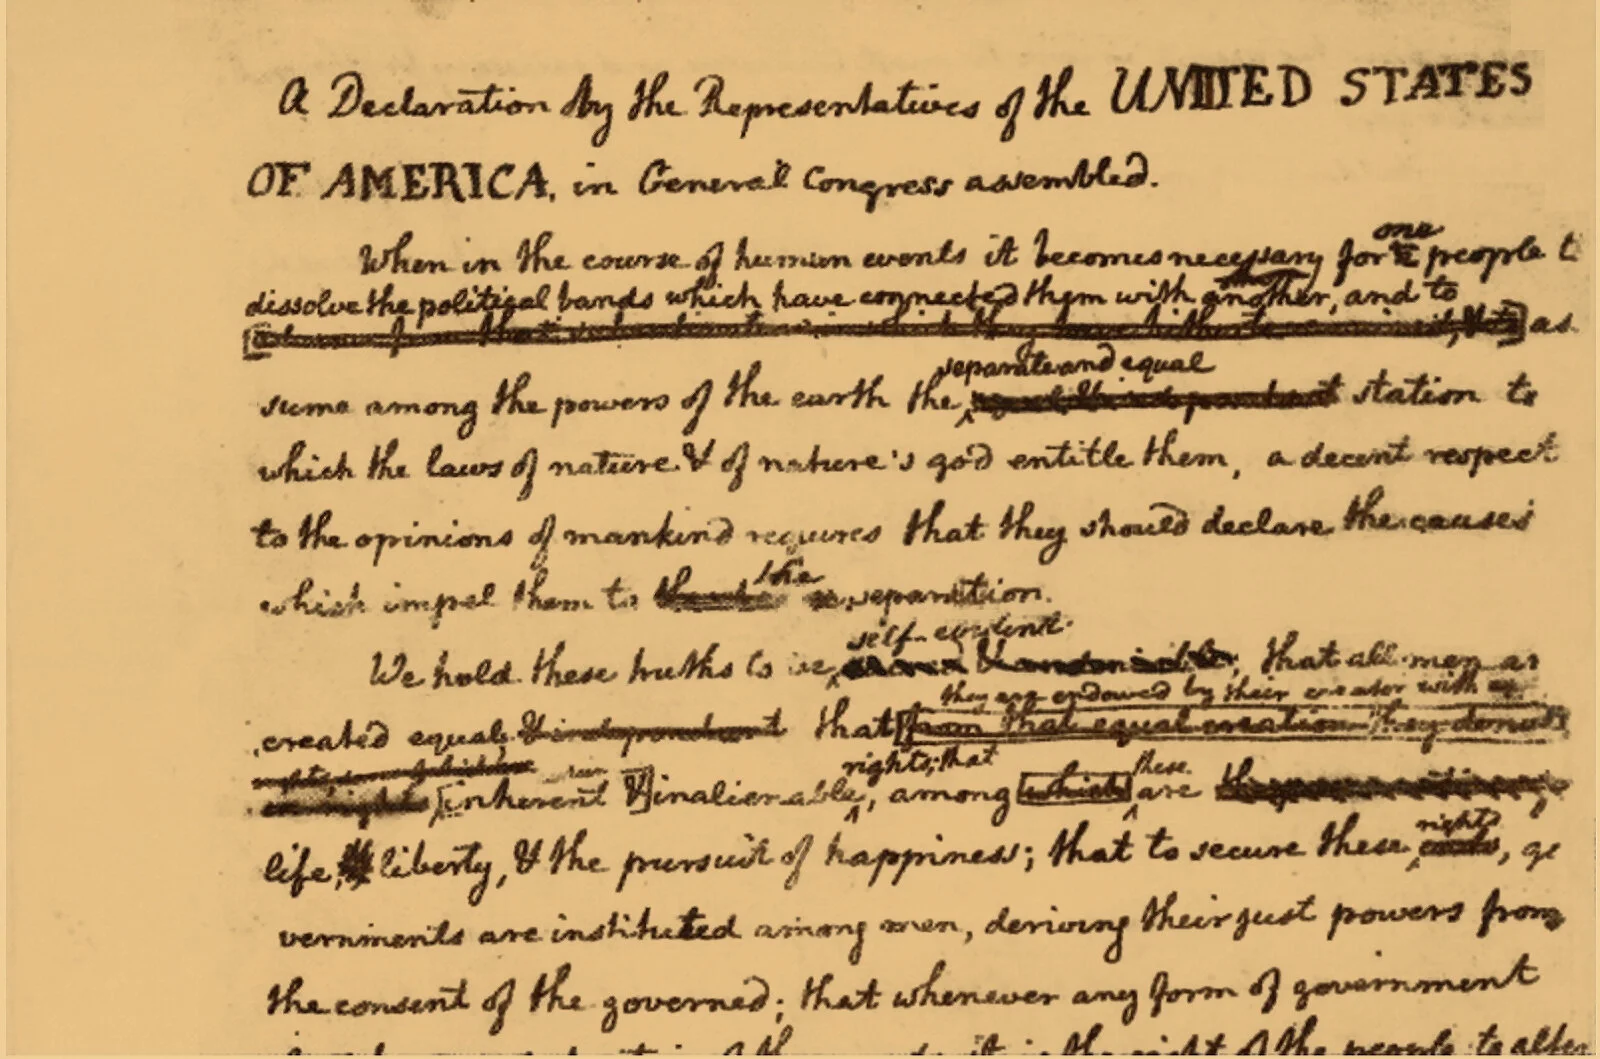 A Declaration by the Representatives of the UNITED STATES
OF AMERICA, in General Congress assembled.
one
When in the course of human events it becomes necessary for people t
dissolve the political bands which have connected them with another, and to
as
separate and equal
sume among the powers of the earth the station to
which the laws of nature & of nature's god entitle them, a decent respect
to the opinions of mankind requires that they should declare the causes
the
which impel them to separation.
self-evident
We hold these truths to be , that all men ar
they are endowed by their creator with
created equal & independent that [from that equal creation they
rights; that
these
[inherent &] inalienable, among [which] are
rights
life, liberty, & the pursuit of happiness; that to secure these , go
vernments are instituted among men, deriving their just powers from
the consent of the governed; that whenever any form of government
it is the right of the people to alter